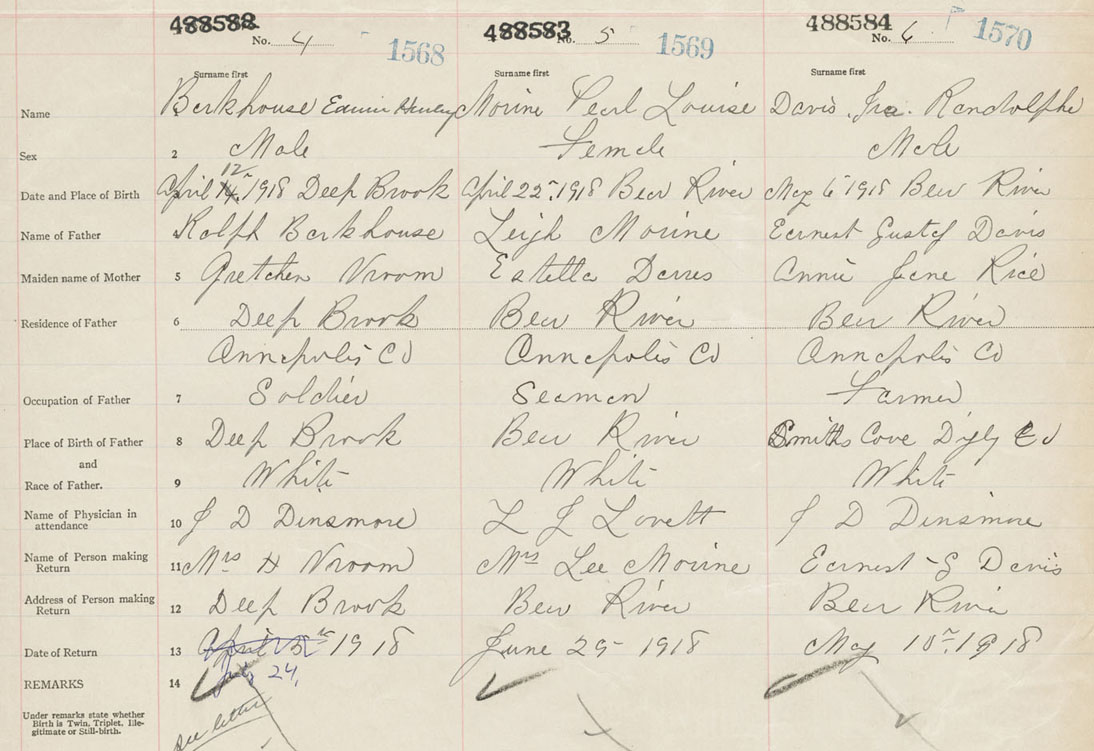 488582 488583 488584
No. 4 1568 No. 5 1569 No. 6 1570
Surname first Surname first Surname first
Name Berkhouse Edwin Morine Pearl Louise Davis Ira Randolphe
Sex 2 Male Female Male
Date and Place of Birth April 12 1918 Deep Brook April 22 1918 Bear River May 6 1918 Bear River
Name of Father Ralph Berkhouse Leigh Morine Earnest Gustaf Davis
Maiden name of Mother 5 Gretchen Vroom Estella Annie Jane Rice
Residence of Father 6 Deep Brook Bear River Bear River
Annapolis Co Annapolis Co Annapolis Co
Occupation of Father 7 Soldier Seaman Farmer
Place of Birth of Father 8 Deep Brook Bear River Smiths Cove Digby Co
and
Race of Father. 9 White White White
Name of Physician in
attendance 10 J D Dinsmore L J Lovett J D Dinsmore
Name of Person making
Return 11 Mrs H Vroom Mrs Lee Morine Earnest G Davis
Address of Person making
Return 12 Deep Brook Bear River Bear River
Date of Return 13 April 1918 June 29 1918 May 10 1918
July 24,
REMARKS 14
Under remarks state whether
Birth is Twin, Triplet, Ille-
gitimate or Still-birth.
see letter